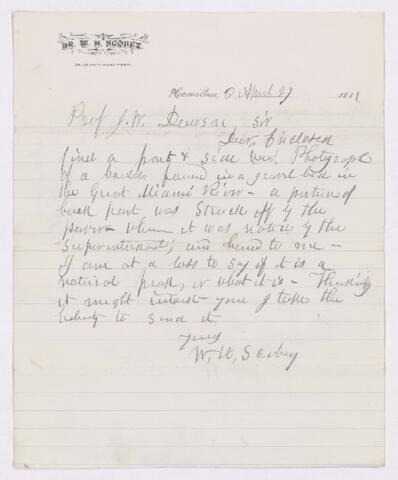 DR. W. H. SCOBEY,
Hamilton, O. April 27 188
Prof J. W. Dawson Sir
Dear, Enclosed
find a front & side view Photograph
of a boulder found in a gravel bed in
the Great Miami River - a portion of
back part was Struck off by the
when it was notice by the
Superintendent, and to me -
I am at a loss to say if it is a
natural freak, or what it is - Thinking
it might interest you I take the
liberty to send it.
Yours
W. H. Scobey